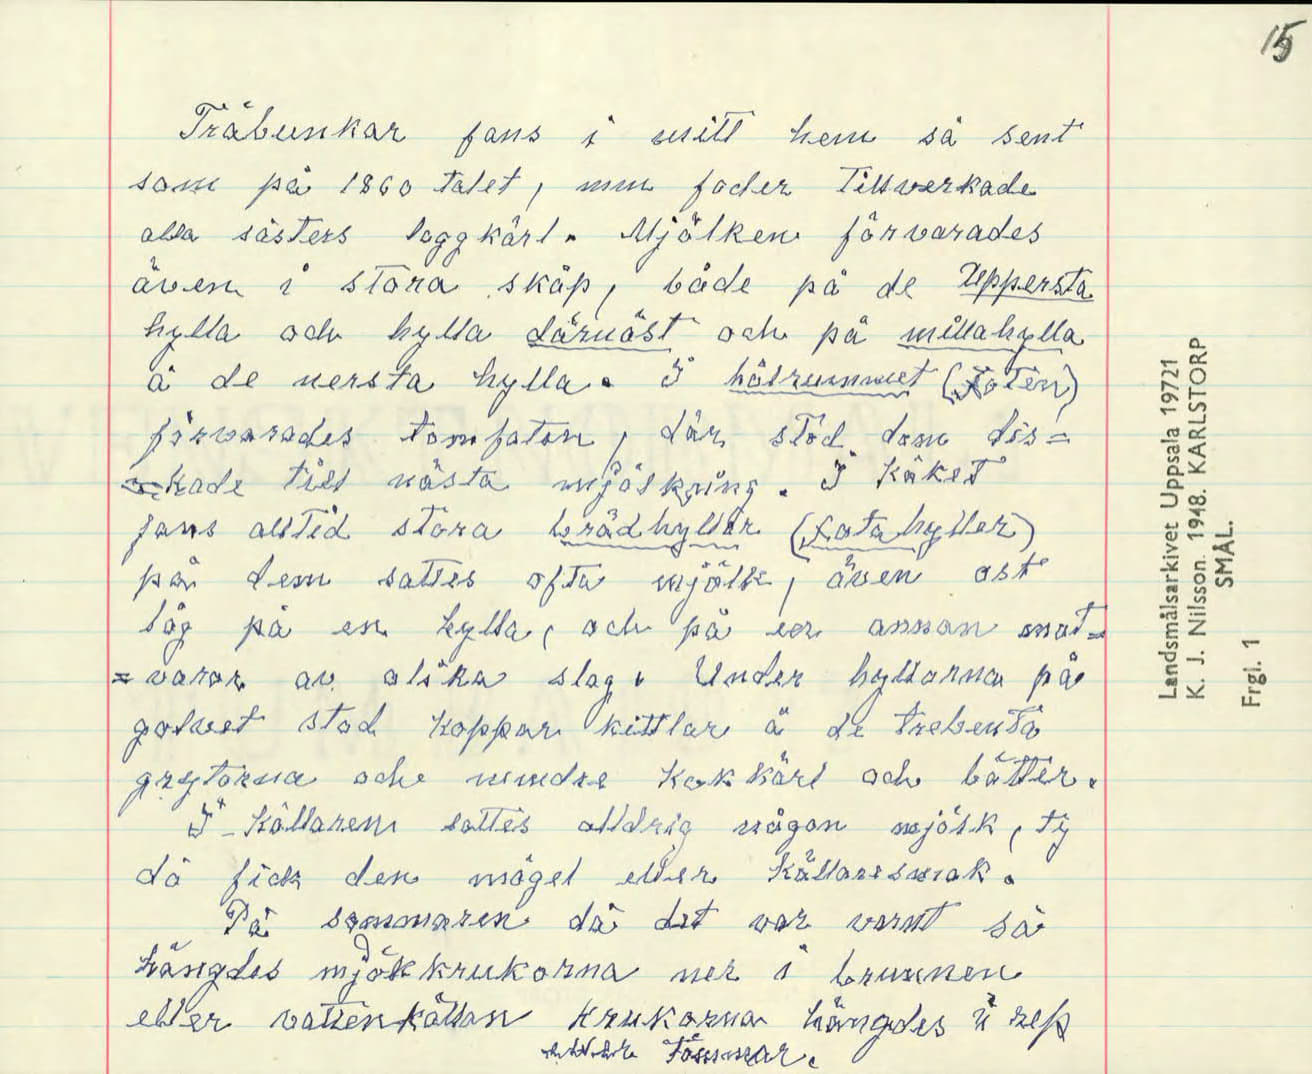 15
Träbunkar fans i mitt hem så sent
som på 1860 talet, min fader Tillverkade
alla såsters laggkärl. Mjölken förvarades
även i stora skåp, både på de Uppersta
hylla och hylla därnäst och på millahylla
å de nersta hylla. I hålrummet (foten)
förvarades tomfaton, där stod dom dis=
kade till nästa mjölkning. I Köket
fans alltid stora brädhyller (fatahyller)
på dem sattes ofta mjölk, även ost
låg på en hylla, och på en annan mat=
=varor av olika slag. Under hyllorna på
golvet stod koppar kittlar å de trebenta
grytorna och mindre kokkärl och bätter.
I Källaren sattes alldrig någon mjölk, ty
då fick den mögel eller källaresmak.
På sommaren då det var varmt så
hängdes mjölkkrukorna ner i brunnen
eller vattenkällan krukorna hängdes i rep
eller Tömmar.
Landsmålsarkivet Uppsala 19721
K. J. Nilsson. 1948. KARLSTORP
SMÅL.
Frgl. 1